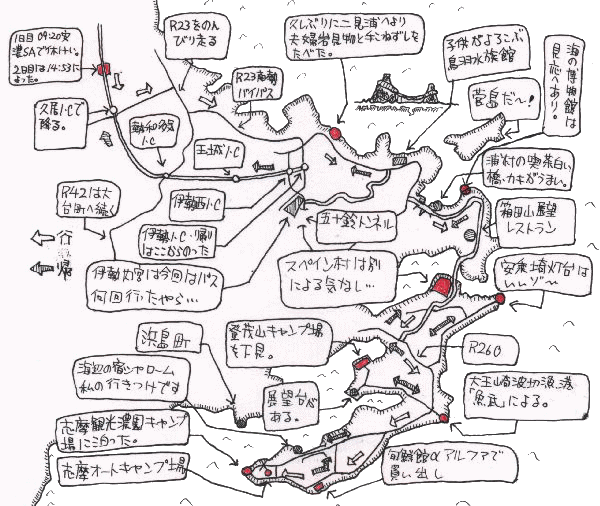 1日目 09:20安
濃SAで休けい。
2日目は14:53に
よった。
R23をのん
びり走る
久しぶりに二見浦へより
夫婦岩見物とてこねずしを
たべた。
子供がよろこぶ
鳥羽水族館
海の博物館は
見応えあり。
R23南勢
バイパス
菅島だ〜!
久居I・Cで
降る。
勢和多気
I・C
玉城I・C
浦村の喫茶白い
橋、カキがうまい。
R42は大
台町へ続く
伊勢西I・C
箱田山展望
レストラン
行
帰
伊勢I・C・帰り
はここからのった
五十鈴トンネル
伊勢内宮は今回はパス
何回行ったやら…
スペイン村は別
による気なし…
安乗埼灯台は
いいゾ〜
浜島町
登茂山キャンプ場
を下見。
R260
海辺の宿シャローム
私の行きつけです
展望台が
ある。
大王崎波切漁港
「魚武」による。
志摩観光農園キャンプ
場に泊った。
志摩オートキャンプ場
旬鮮館αアルファで
買い出し